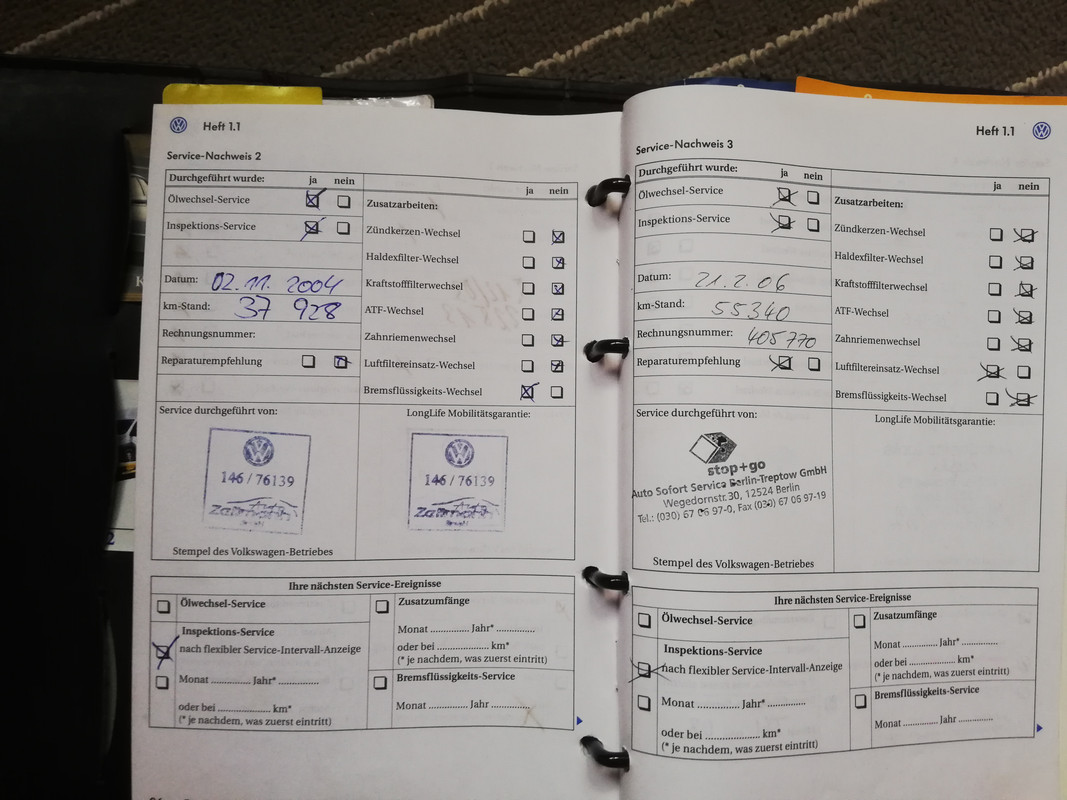 Heft 1.1
Service-Nachweis 2
Durchgeführt wurde: ja nein
Ölwechsel-Service
Inspektions-Service
Datum: 02.11.2004
km-Stand: 37 928
Rechnungsnummer:
Reparaturempfehlung
ja nein
Zusatzarbeiten:
Zündkerzen-Wechsel
Haldexfilter-Wechsel
Kraftstofffilterwechsel
ATF-Wechsel
Zahnriemenwechsel
Luftfiltereinsatz-Wechsel
Bremsflüssigkeits-Wechsel
Service durchgeführt von:
146 / 76139
Stempel des Volkswagen-Betriebes
LongLife Mobilitätsgarantie:
146 / 76139
Ihre nächsten Service-Ereignisse
Ölwechsel-Service
Inspektions-Service
nach flexibler Service-Intervall-Anzeige
Monat .............. Jahr* ..............
oder bei .................... km*
(* je nachdem, was zuerst eintritt)
Zusatzumfänge
Monat .............. Jahr* ..............
oder bei .................... km*
(* je nachdem, was zuerst eintritt)
Bremsflüssigkeits-Service
Monat .............. Jahr ..............
Heft 1.1
Service-Nachweis 3
Durchgeführt wurde: ja nein
Ölwechsel-Service
Inspektions-Service
Datum: 21.2.06
km-Stand: 55340
Rechnungsnummer: 405770
Reparaturempfehlung
ja nein
Zusatzarbeiten:
Zündkerzen-Wechsel
Haldexfilter-Wechsel
Kraftstofffilterwechsel
ATF-Wechsel
Zahnriemenwechsel
Luftfiltereinsatz-Wechsel
Bremsflüssigkeits-Wechsel
Service durchgeführt von:
stop+go
Auto Sofort Service Berlin-Treptow GmbH
Wegedornstr. 30, 12524 Berlin
Tel.: (030) 67 06 97-0, Fax (030) 67 06 97-19
Stempel des Volkswagen-Betriebes
LongLife Mobilitätsgarantie:
Ihre nächsten Service-Ereignisse
Ölwechsel-Service
Inspektions-Service
nach flexibler Service-Intervall-Anzeige
Monat .............. Jahr* ..............
oder bei .................... km*
(* je nachdem, was zuerst eintritt)
Zusatzumfänge
Monat .............. Jahr* ..............
oder bei .................... km*
(* je nachdem, was zuerst eintritt)
Bremsflüssigkeits-Service
Monat .............. Jahr ..............